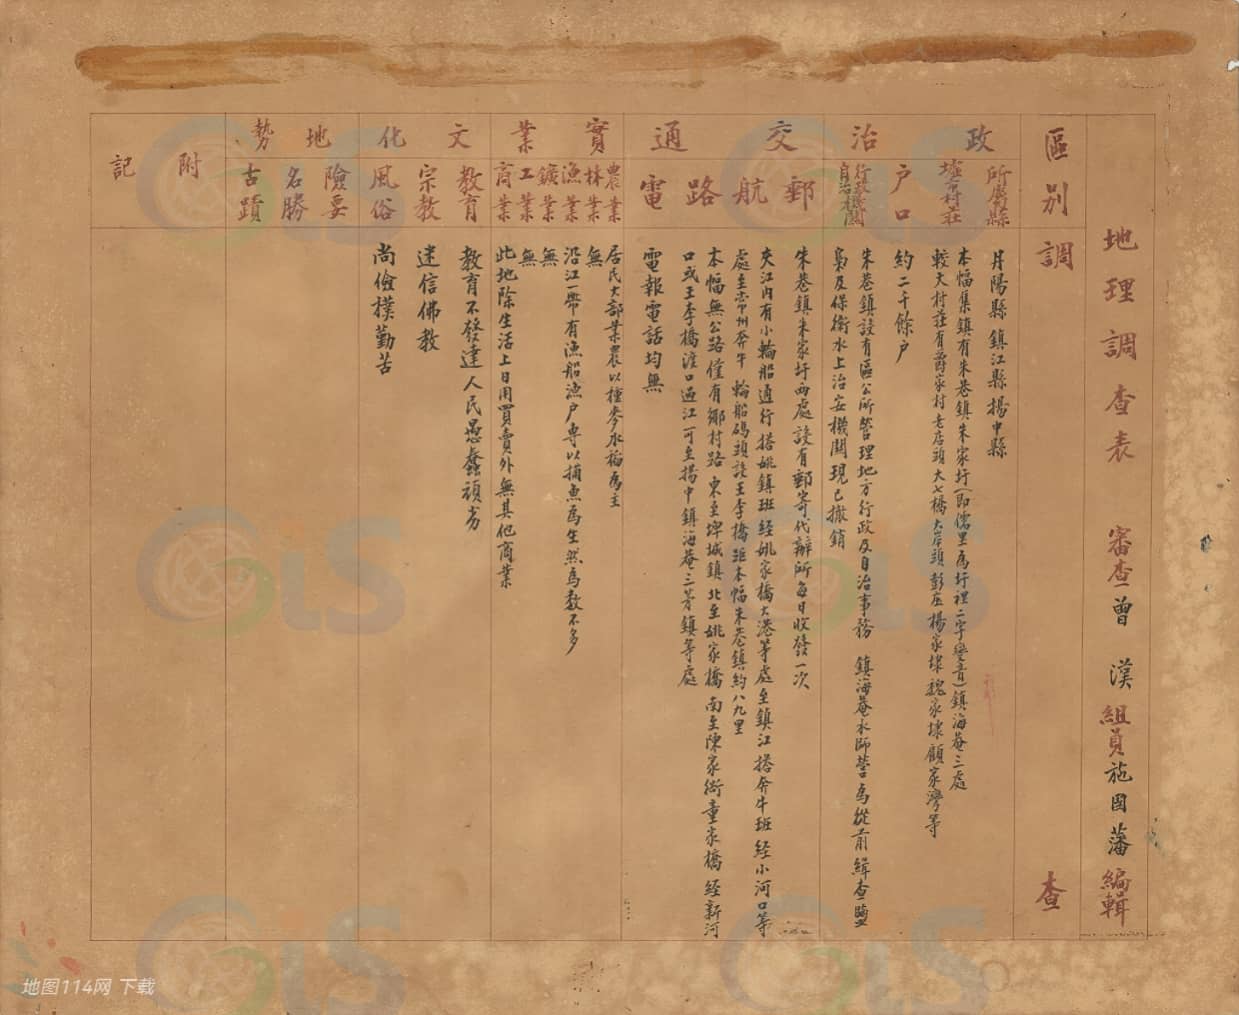 地理調查表　審查曾　漢　組員施國藩編輯
區別　調　查
政治
所屬縣
丹陽縣　鎮江縣　揚中縣
墟市村莊
本幅集鎮有朱巷鎮朱家圩(即儒里為圩裡二字變音)鎮海菴三處
較大村莊有爵家村老店頭大七橋大岸頭彭庄楊家埭魏家埭顧家灣等
戶口
約二千餘户
行政機關
自治機關
朱巷鎮設有區公所管理地方行政及自治事務　鎮海菴水師營為從前緝查鹽
梟及保衛水上治安機關現已撤銷
交通
郵
朱巷鎮朱家圩兩處設有郵寄代辦所每日收發一次
航
夾江內有小輪船通行搭姚鎮班經姚家橋大港等處至鎮江搭奔牛班經小河口等
處至常州奔牛　輪船碼頭設王李橋距本幅朱巷鎮約八九里
路
本幅無公路僅有鄉村路　東至埤城鎮　北至姚家橋　南至陳家衖童家橋　經新河
口或王李橋渡口過江可至揚中鎮海菴三茅鎮等處
電
電報電話均無
實業
農業
居民大部業農以種麥水稻為主
林業
無
漁業
沿江一帶有漁船漁戶專以捕魚為生然為數不多
鑛業
無
工業
無
商業
此地除生活上日用買賣外無其他商業
文化
教育
教育不發達人民愚蠢頑劣
宗教
迷信佛教
風俗
尚儉樸勤苦
地勢
險要
名勝
古蹟
附記
GiS
GiS
GiS
GiS
GiS
GiS
地图114网 下载